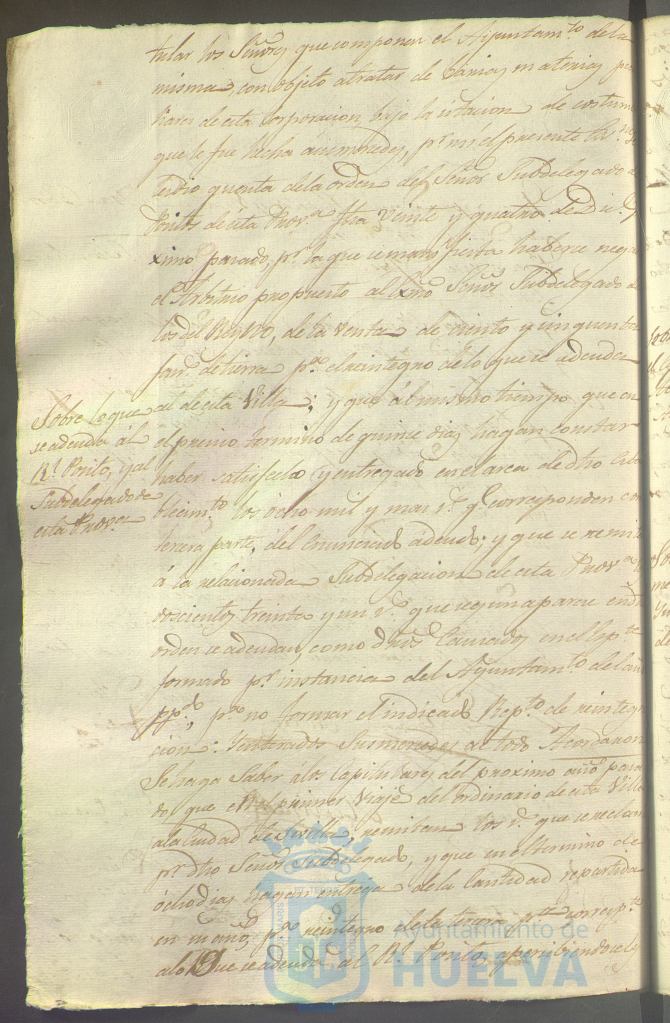 tular los Señores que componen el Ayuntamto de la
misma con objeto a tratar de varias materias
de esta corporacion, bajo la citacion de costum
que le fue hecha a sus mercedes, pr mi el presente
se dio quenta de la orden del Señor Subdelegado de
Positos de esta Prova fha veinte y quatro de Dice
ximo pasado, pr la que se manifiesta haberse nega
el Arbitrio propuesto al Exmo Señor Subdelegado
del Reyno, de la venta de ciento y cinquenta
fans de tierra pa el reintegro de lo que se adeuda
al de esta Villa; y que al mismo tiempo que en
el preciso termino de quince dias hagan constar
haber satisfecho y entregado en el arca de dho Esta
blecimto los ocho mil y mas rs q corresponden
tercera parte, del enunciado adeudo; y que se remit
á la relacionada Subdelegacion de esta Prova
doscientos treinta y un rs que segun aparece en
orden se adeudan, como dros causados en el Expte
formado pr instancia del Ayuntamto del año
ppdo, pa no formar el indicado Repto de reintegr
cion: Y enterados sus mercedes de todo Acordaron
Se haga saber á los Capitulares del proximo año pasa
do, que en el primer viaje del ordinario de esta Villa
a la Ciudad de Sevilla, remitan los rs que se reclam
pr dho Señor Subdelegado, y que en el termino de
ócho dias hagan entrega de la Cantidad repartida
en pa reintegro de la tercera pte correspte
a lo que se adeuda al Rl Posito, apercibiendoseles
Sobre lo que
se adeuda al
Rl Posito, y al
Subdelegado de
esta Prova
Ayuntamiento de
HUELVA